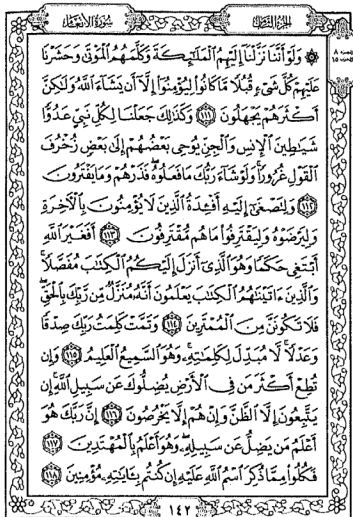 الجزء الثامن
سورة الأنعام
۞ وَلَوْ أَنَّنَا نَزَّلْنَا إِلَيْهِمُ الْمَلَٰئِكَةَ وَكَلَّمَهُمُ الْمَوْتَىٰ وَحَشَرْنَا
عَلَيْهِمْ كُلَّ شَىْءٍ قُبُلًا مَّا كَانُوا لِيُؤْمِنُوا إِلَّا أَن يَشَاءَ اللَّهُ وَلَٰكِنَّ
أَكْثَرَهُمْ يَجْهَلُونَ ١١١ وَكَذَٰلِكَ جَعَلْنَا لِكُلِّ نَبِىٍّ عَدُوًّا
شَيَٰطِينَ الْإِنسِ وَالْجِنِّ يُوحِى بَعْضُهُمْ إِلَىٰ بَعْضٍ زُخْرُفَ
الْقَوْلِ غُرُورًا وَلَوْ شَاءَ رَبُّكَ مَا فَعَلُوهُ فَذَرْهُمْ وَمَا يَفْتَرُونَ
١١٢ وَلِتَصْغَىٰ إِلَيْهِ أَفْـِٔدَةُ الَّذِينَ لَا يُؤْمِنُونَ بِالْـَٔاخِرَةِ
وَلِيَرْضَوْهُ وَلِيَقْتَرِفُوا مَا هُم مُّقْتَرِفُونَ ١١٣ أَفَغَيْرَ اللَّهِ
أَبْتَغِى حَكَمًا وَهُوَ الَّذِى أَنزَلَ إِلَيْكُمُ الْكِتَٰبَ مُفَصَّلًا
وَالَّذِينَ ءَاتَيْنَٰهُمُ الْكِتَٰبَ يَعْلَمُونَ أَنَّهُ مُنَزَّلٌ مِّن رَّبِّكَ بِالْحَقِّ
فَلَا تَكُونَنَّ مِنَ الْمُمْتَرِينَ ١١٤ وَتَمَّتْ كَلِمَتُ رَبِّكَ صِدْقًا
وَعَدْلًا لَّا مُبَدِّلَ لِكَلِمَٰتِهِ وَهُوَ السَّمِيعُ الْعَلِيمُ ١١٥ وَإِن
تُطِعْ أَكْثَرَ مَن فِى الْأَرْضِ يُضِلُّوكَ عَن سَبِيلِ اللَّهِ إِن
يَتَّبِعُونَ إِلَّا الظَّنَّ وَإِنْ هُمْ إِلَّا يَخْرُصُونَ ١١٦ إِنَّ رَبَّكَ هُوَ
أَعْلَمُ مَن يَضِلُّ عَن سَبِيلِهِ وَهُوَ أَعْلَمُ بِالْمُهْتَدِينَ ١١٧
فَكُلُوا مِمَّا ذُكِرَ اسْمُ اللَّهِ عَلَيْهِ إِن كُنتُم بِـَٔايَٰتِهِ مُؤْمِنِينَ ١١٨
١٤٢